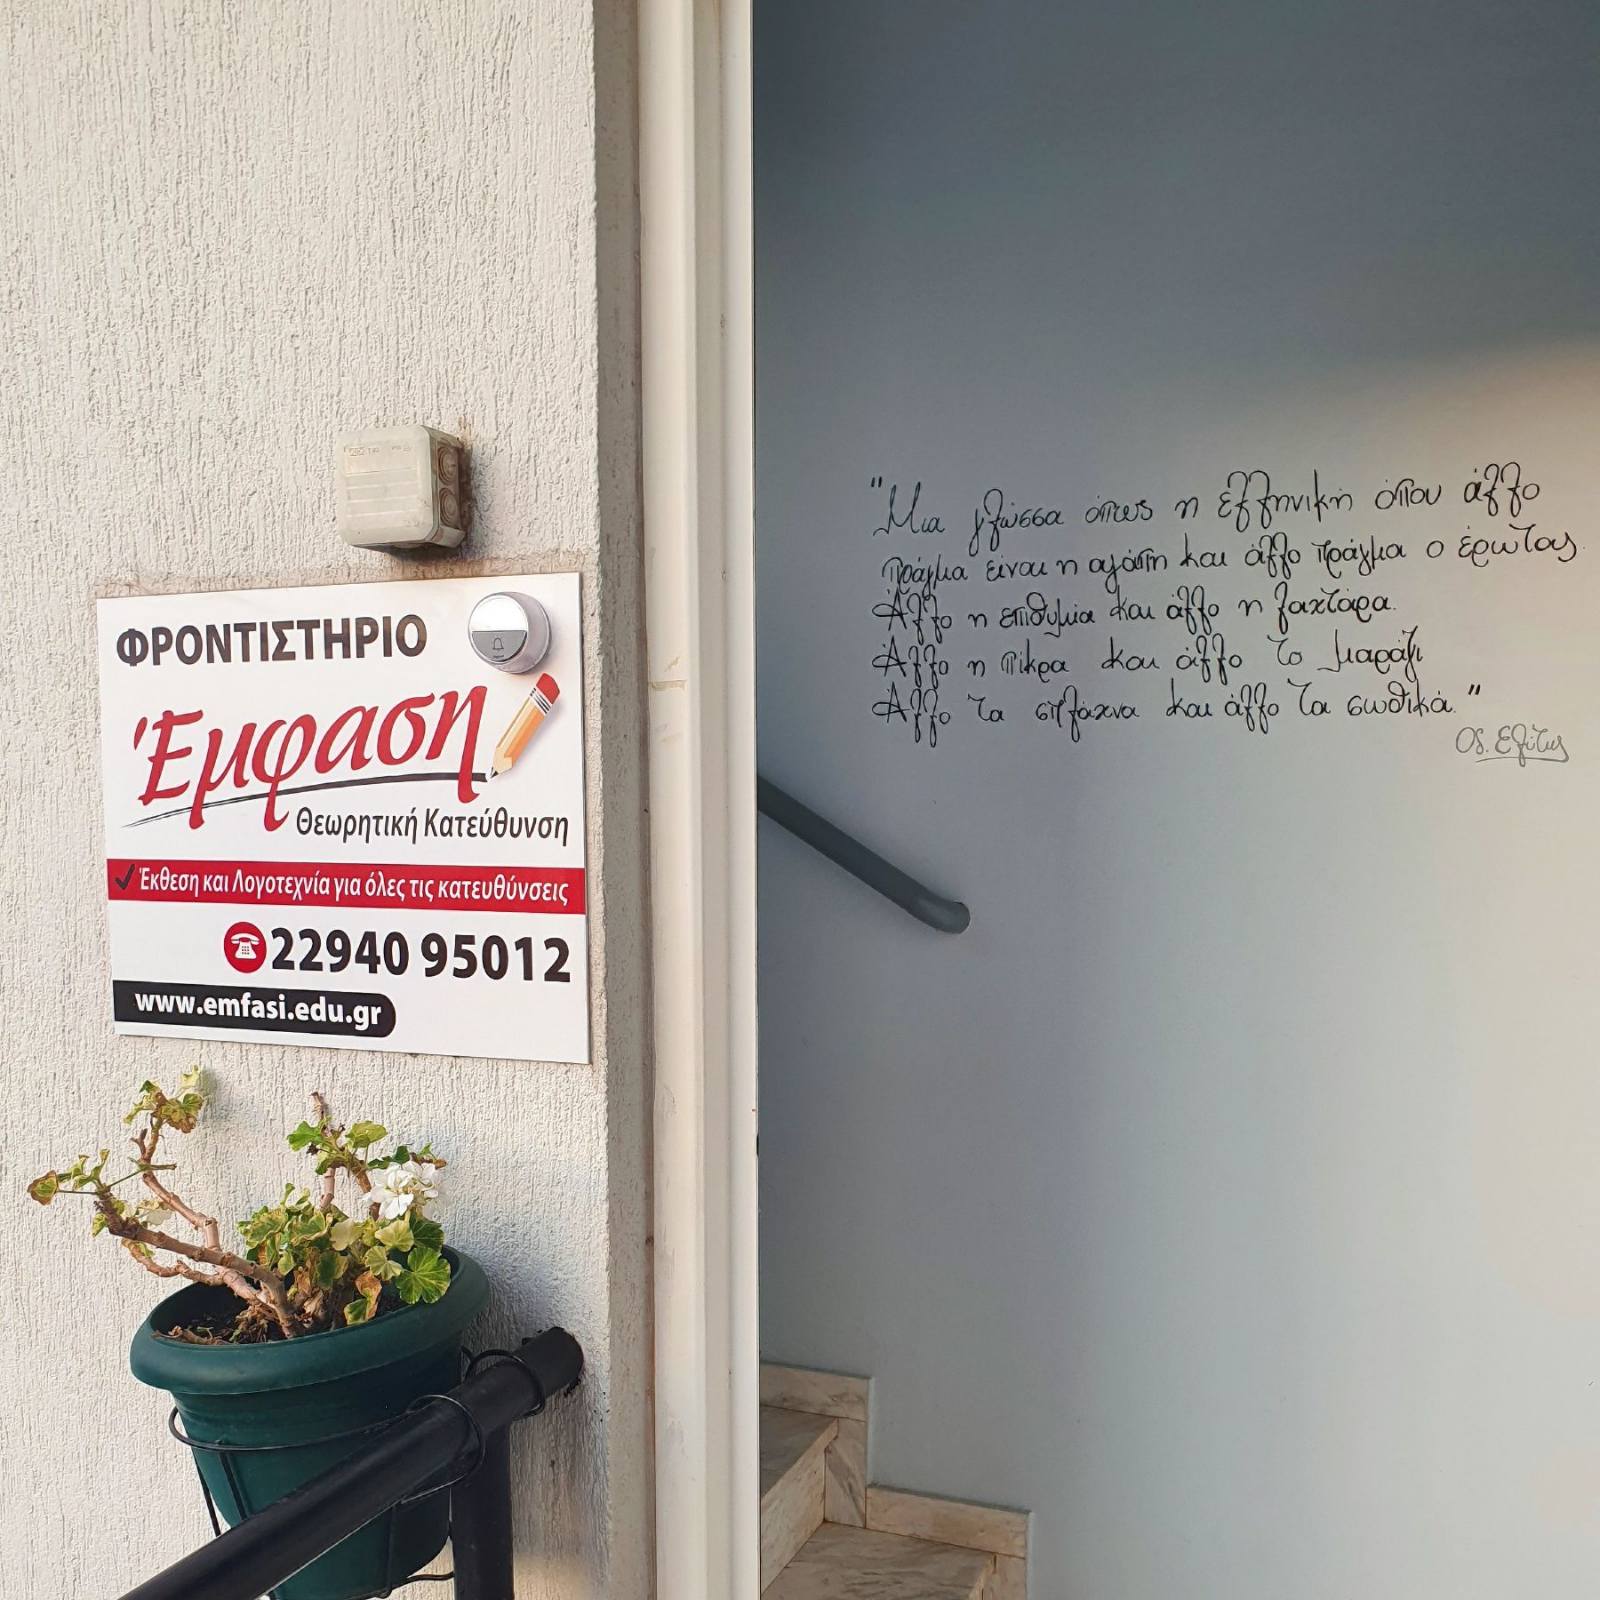 ΦΡΟΝΤΙΣΤΗΡΙΟ
Έμφαση
Θεωρητική Κατεύθυνση
Έκθεση και Λογοτεχνία για όλες τις κατευθύνσεις
22940 95012
www.emfasi.edu.gr
"Μια γλώσσα όπως η ελληνική όπου άλλο
πράγμα είναι η αγάπη και άλλο πράγμα ο έρωτας.
Άλλο η επιθυμία και άλλο η λαχτάρα.
Άλλο η πίκρα και άλλο το μαράζι
Άλλο τα σπλάχνα και άλλο τα σωθικά."
Οδ. Ελύτης